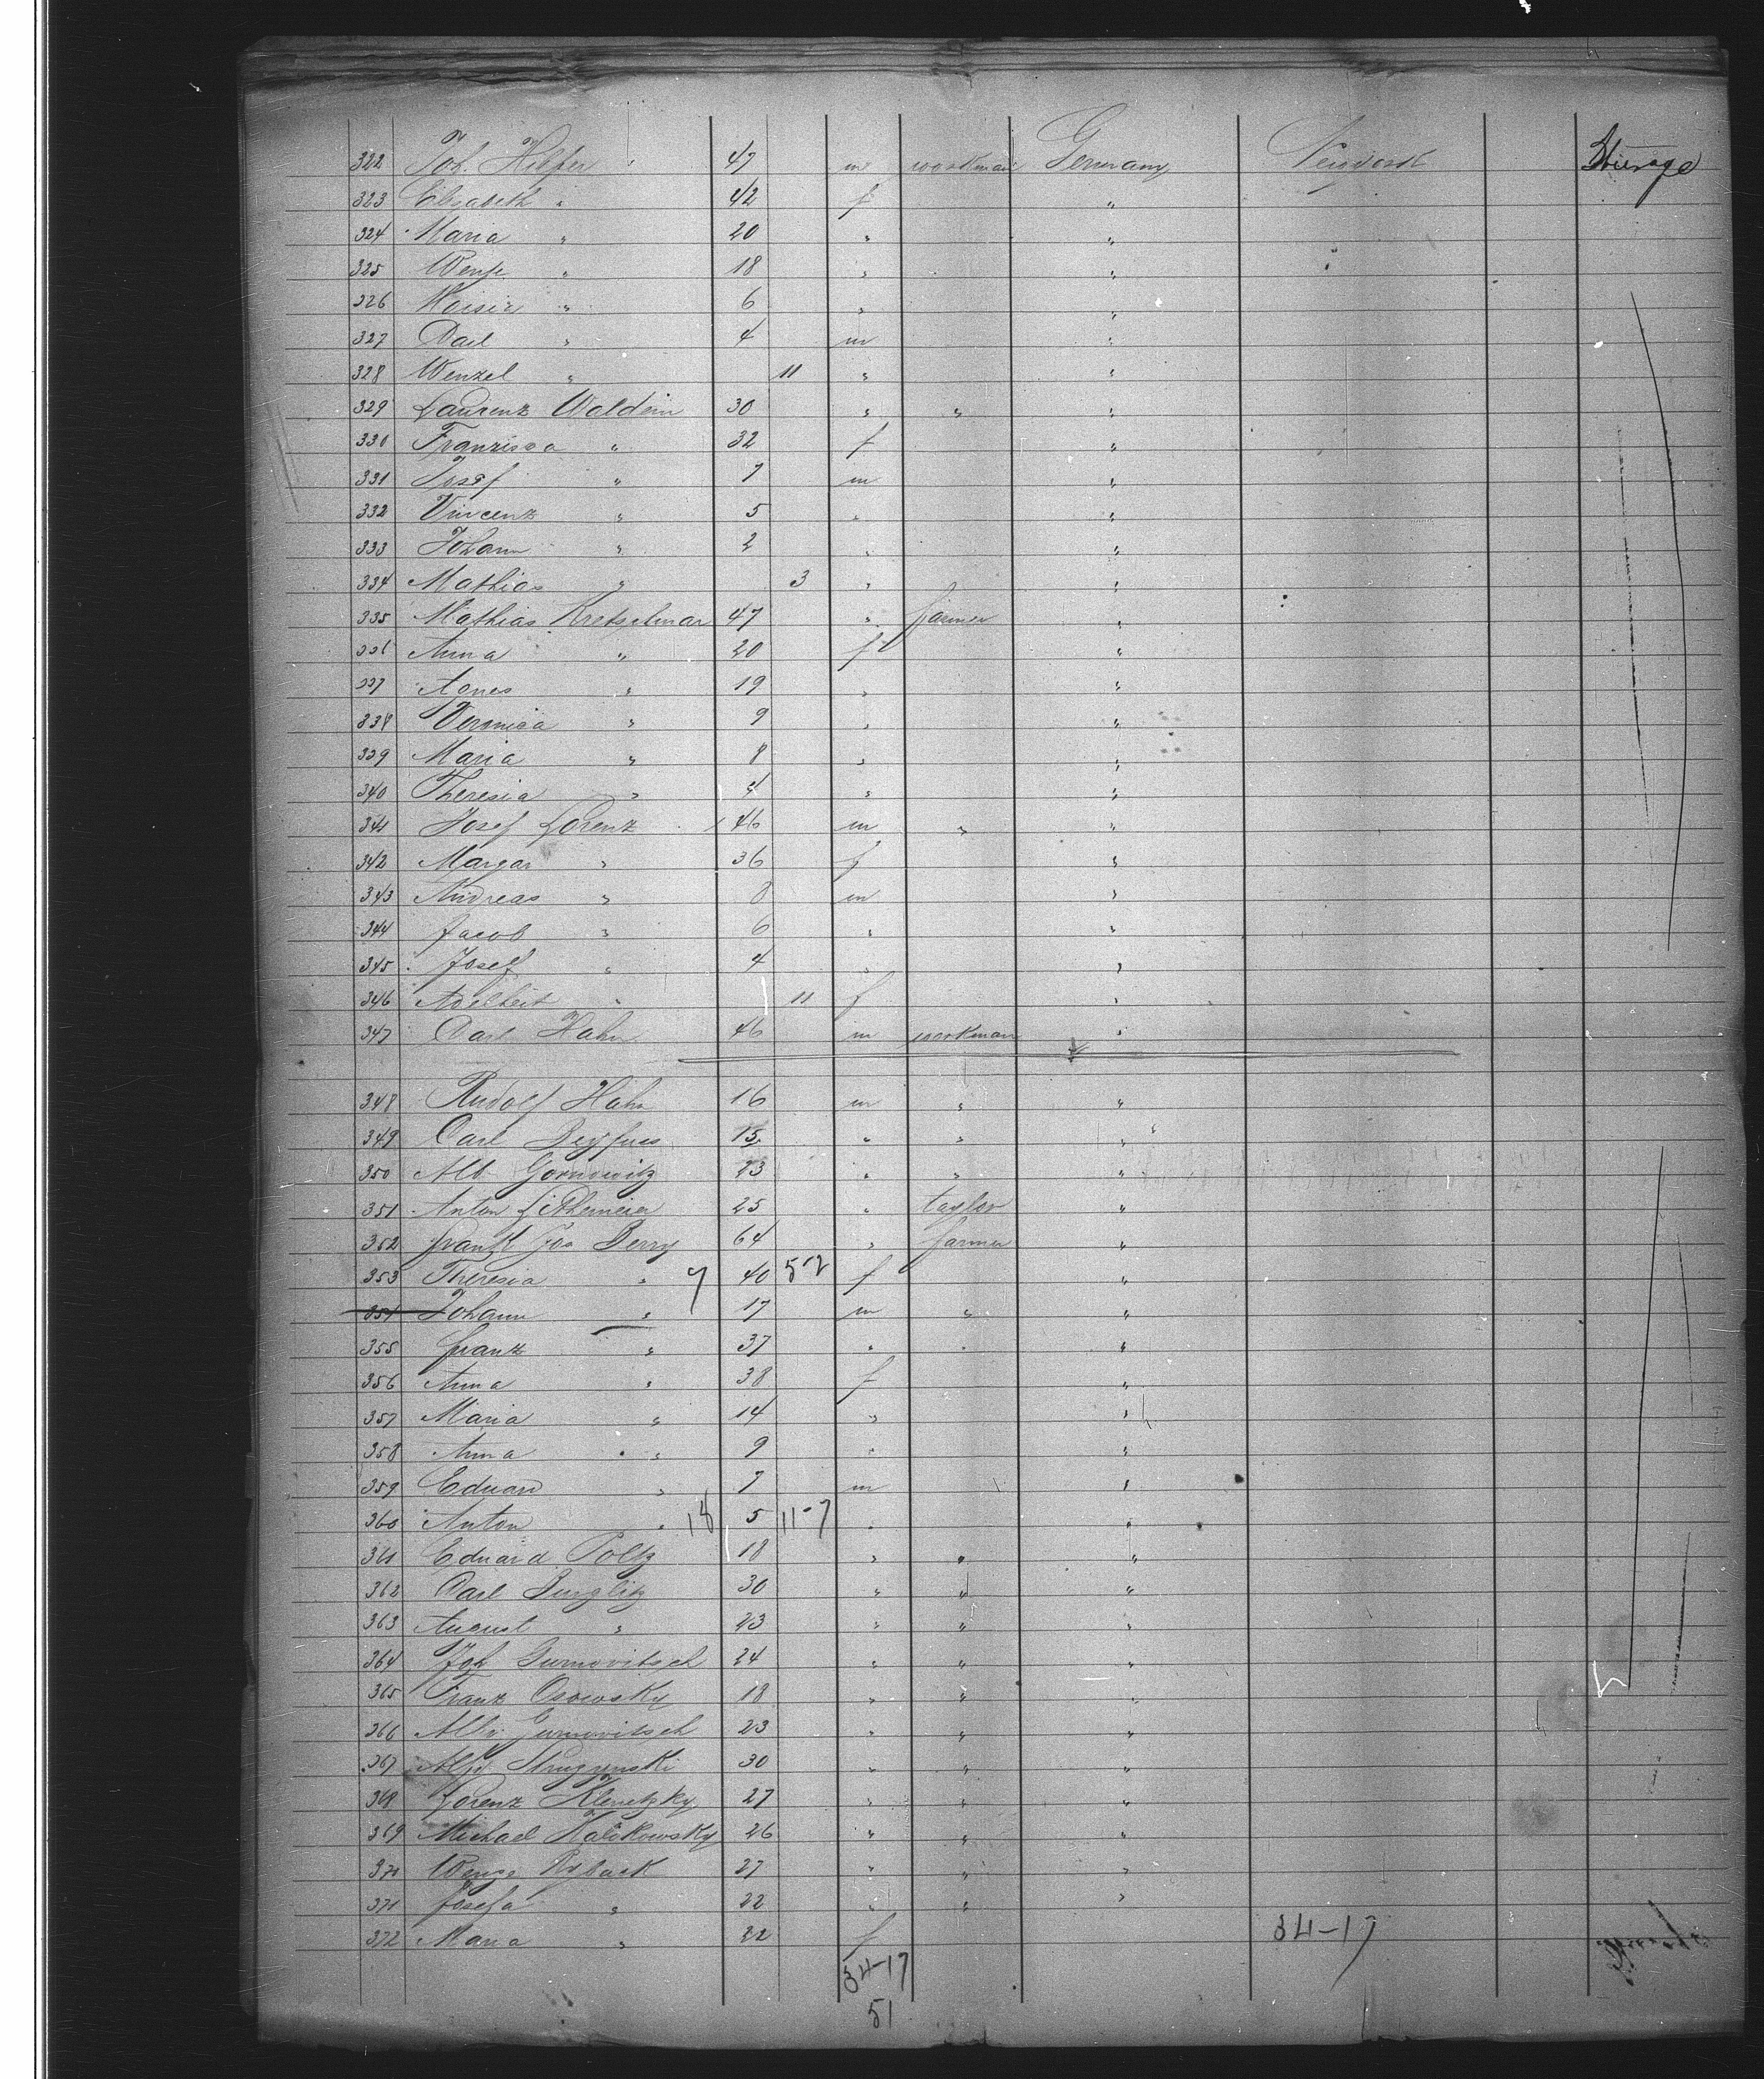 322 Joh. Hilfer 47 m workman Germany Newyork Steerage
323 Elisabeth " 42 f "
324 Maria " 20 " "
325 18 " "
326 6 " "
327 Carl " 4 m "
328 Wenzel " 11 " "
329 Laurenz Waldein 30 " " "
330 Franzisca " 32 f "
331 Josef " 7 m "
332 Vincenz " 5 " "
333 Johann " 2 " "
334 Mathias " 3 " "
335 Mathias Kretschmar 47 " farmer "
336 Anna " 20 f "
337 Agnes " 19 " "
338 Veronica " 9 " "
339 Maria " 8 " "
340 Theresia " 4 " "
341 Josef Lorenz 46 m " "
342 Margar " 36 f "
343 Andreas " 8 m "
344 Jacob " 6 " "
345 Josef " 4 " "
346 Adelheit " 11 f "
347 Carl Hahn 46 m workman "
348 Rudolf Hahn 16 m " "
349 Carl Deyfuss 15 " " "
350 Alb. Gornowitz 23 " " "
351 Anton 25 " taylor "
352 Franz Jos Berry 64 " farmer "
353 Theresia " 7 40 52 f "
354 Johann " 17 m " "
355 Franz " 37 " "
356 Anna " 38 f "
357 Maria " 14 " "
358 Anna " 9 " "
359 Eduard " 7 m "
360 Anton " 18 5 11-7 " "
361 Eduard Poltz 18 " " "
362 Carl Burglitz 30 " " "
363 August " 23 " " "
364 Joh Gurnovitsch 24 " " "
365 Franz Osowsky 18 " " "
366 Alb. Gurnovitsch 23 " " "
367 Struzynski 30 " " "
368 Lorenz Klenetzky 27 " " "
369 Michael Kalikowsky 26 " " "
370 Ryback 27 " " "
371 Josefa " 22 " " "
372 Maria " 22 f 34-17
34-17
51